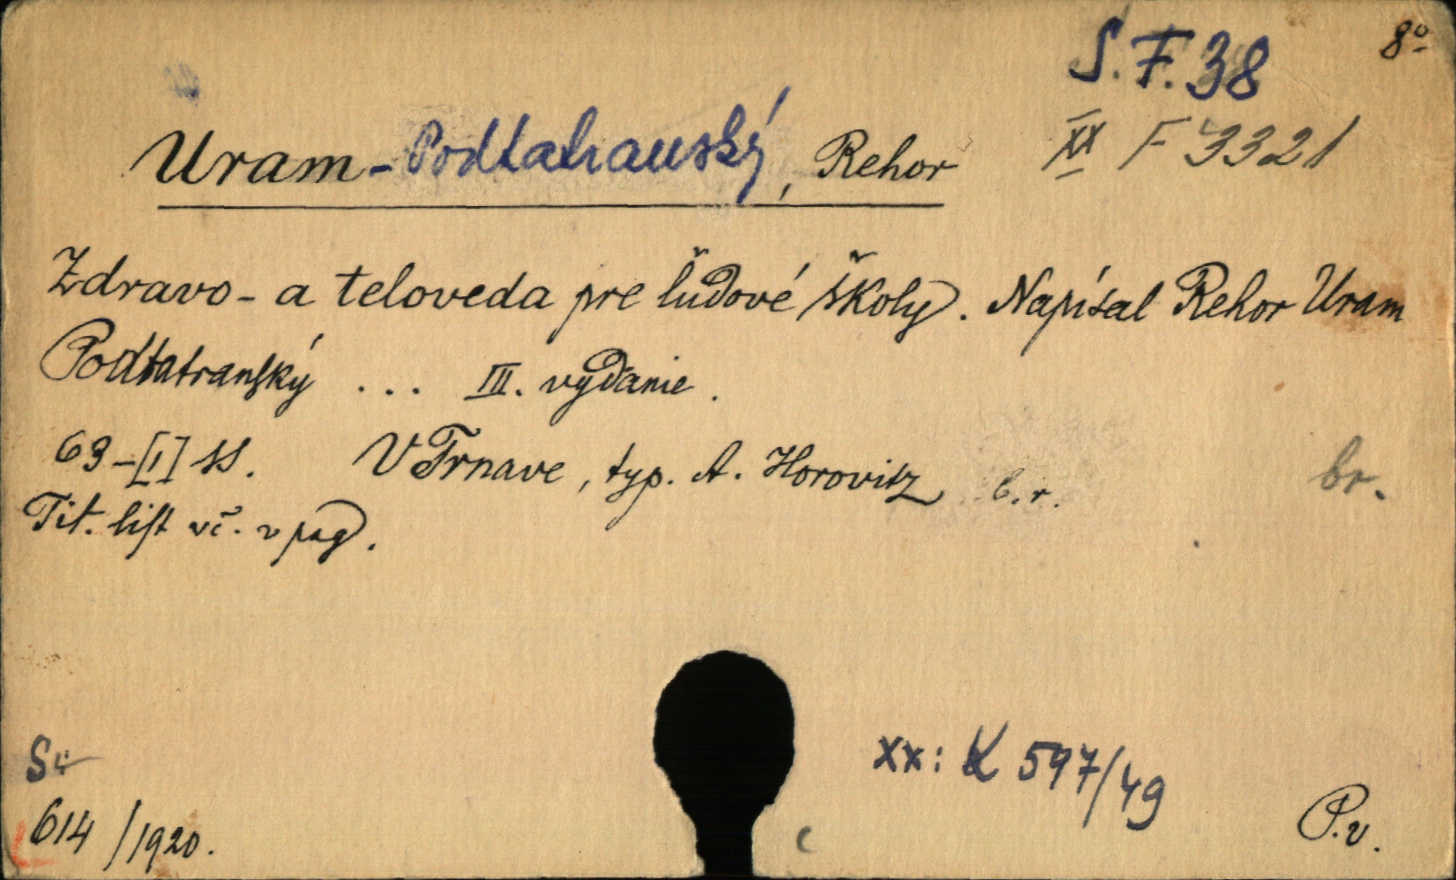 S. F. 38
8°
Uram-Podtatranský, Rehor
XX F 3321
Zdravo- a teloveda pre ľudové školy. Napísal Rehor Uram
Podtatranſký ... III. vydanie.
63-[1] ss. V Trnave, typ. A. Horovitz b. r.
br.
Tit. liſt vč. v pag.
XX: K 597/49
614/1920.
P. v.